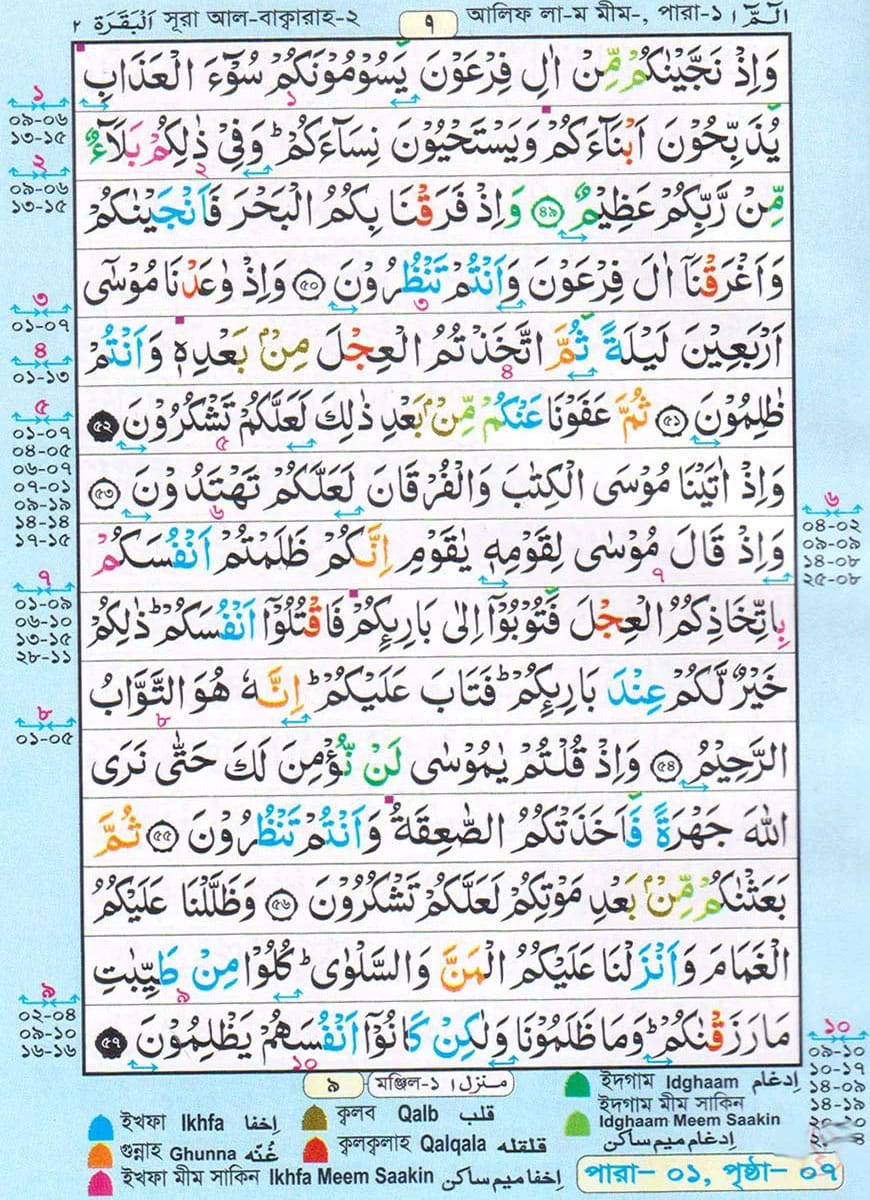 الٓمّٓ ١ আলিফ লা-ম মীম-, পারা-১ ৭ সূরা আল-বাক্বারাহ-২ اَلْبَقَرَة ٢
وَاِذْ نَجَّيْنٰكُمْ مِّنْ اٰلِ فِرْعَوْنَ يَسُوْمُوْنَكُمْ سُوْٓءَ الْعَذَابِ
يُذَبِّحُوْنَ اَبْنَآءَكُمْ وَيَسْتَحْيُوْنَ نِسَآءَكُمْ ؕ وَفِيْ ذٰلِكُمْ بَلَآءٌ
مِّنْ رَّبِّكُمْ عَظِيْمٌ ﴿٤٩﴾ وَاِذْ فَرَقْنَا بِكُمُ الْبَحْرَ فَاَنْجَيْنٰكُمْ
وَاَغْرَقْنَآ اٰلَ فِرْعَوْنَ وَاَنْتُمْ تَنْظُرُوْنَ ﴿٥٠﴾ وَاِذْ وٰعَدْنَا مُوْسٰٓى
اَرْبَعِيْنَ لَيْلَةً ثُمَّ اتَّخَذْتُمُ الْعِجْلَ مِنْۢ بَعْدِهٖ وَاَنْتُمْ
ظٰلِمُوْنَ ﴿٥١﴾ ثُمَّ عَفَوْنَا عَنْكُمْ مِّنْۢ بَعْدِ ذٰلِكَ لَعَلَّكُمْ تَشْكُرُوْنَ ﴿٥٢﴾
وَاِذْ اٰتَيْنَا مُوْسَى الْكِتٰبَ وَالْفُرْقَانَ لَعَلَّكُمْ تَهْتَدُوْنَ ﴿٥٣﴾
وَاِذْ قَالَ مُوْسٰى لِقَوْمِهٖ يٰقَوْمِ اِنَّكُمْ ظَلَمْتُمْ اَنْفُسَكُمْ
بِاتِّخَاذِكُمُ الْعِجْلَ فَتُوْبُوْٓا اِلٰى بَارِئِكُمْ فَاقْتُلُوْٓا اَنْفُسَكُمْ ؕ ذٰلِكُمْ
خَيْرٌ لَّكُمْ عِنْدَ بَارِئِكُمْ ؕ فَتَابَ عَلَيْكُمْ ؕ اِنَّهٗ هُوَ التَّوَّابُ
الرَّحِيْمُ ﴿٥٤﴾ وَاِذْ قُلْتُمْ يٰمُوْسٰى لَنْ نُّؤْمِنَ لَكَ حَتّٰى نَرَى
اللّٰهَ جَهْرَةً فَاَخَذَتْكُمُ الصّٰعِقَةُ وَاَنْتُمْ تَنْظُرُوْنَ ﴿٥٥﴾ ثُمَّ
بَعَثْنٰكُمْ مِّنْۢ بَعْدِ مَوْتِكُمْ لَعَلَّكُمْ تَشْكُرُوْنَ ﴿٥٦﴾ وَظَلَّلْنَا عَلَيْكُمُ
الْغَمَامَ وَاَنْزَلْنَا عَلَيْكُمُ الْمَنَّ وَالسَّلْوٰى ؕ كُلُوْا مِنْ طَيِّبٰتِ
مَا رَزَقْنٰكُمْ ؕ وَمَا ظَلَمُوْنَا وَلٰكِنْ كَانُوْٓا اَنْفُسَهُمْ يَظْلِمُوْنَ ﴿٥٧﴾
১
০৯-০৬
১৩-১৫
২
০৯-০৬
১৩-১৫
৩
০১-০৭
৪
০১-১৩
৫
০১-০৭
০৪-০৫
০৬-০৭
০৭-০১
০৯-১৯
১৪-১৪
১৭-১৫
৭
০১-০৯
০৬-১০
১৩-১৫
২৮-১১
৮
০১-০৫
৯
০২-০৪
০৯-১০
১৬-১৬
৬
০৪-০২
০৯-০৯
১৪-০৮
২৫-০৮
১০
০৯-১০
১০-১৭
১৪-০৯
১৪-১৯
২০-২০
৯ মঞ্জিল-১ منزل ١
ইদগাম Idghaam اِدغام
ইদগাম মীম সাকিন
Idghaam Meem Saakin
اِدغام ميم ساكن
ইখফা Ikhfa اِخفا
ক্বলব Qalb قلب
গুন্নাহ Ghunna غُنّه
ক্বলক্বলাহ Qalqala قلقله
ইখফা মীম সাকিন Ikhfa Meem Saakin اِخفا ميم ساكن
পারা- ০১, পৃষ্ঠা- ০৭